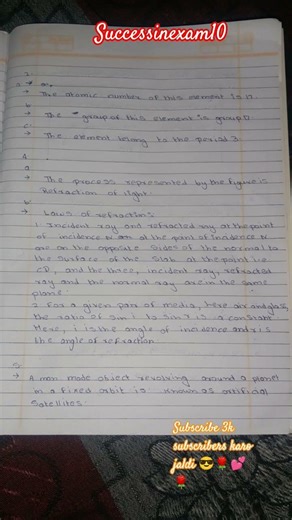 Successinexam10
2
a →
→ The atomic number of this element is 17.
b
→ The group of this element is group
c
→ The element belong to the period 3.
4.
a
→ The process represented by the figure is
Refraction of light.
b
→ Laws of refraction:
1. Incident ray and refracted ray at the point
of incidence at the point of incidence
are on the opposite sides of the normal to
the surface of the slab at the point i.e
CD, and the three, incident ray, refracted
ray and the normal ray are in the same
plane
2. For a given pair of media, here air and glass,
the ratio of sin i to sin r is a constant
Here, i is the angle of incidence and r is
the angle of refraction
5
→ A man made object revolving around a planet
in a fixed orbit is known as artificial
satellites.
Subscribe 3k
subscribers karo
jaldi 😎🌹💕
🌹